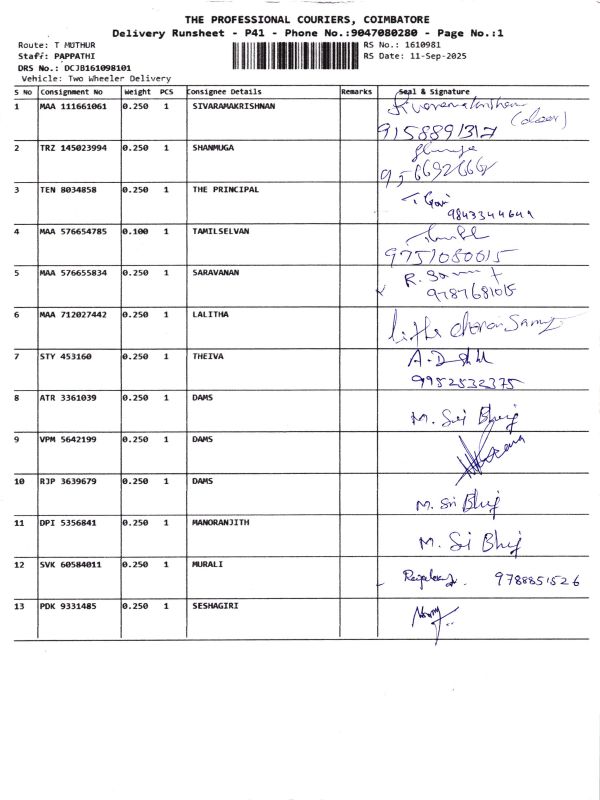 THE PROFESSIONAL COURIERS, COIMBATORE
Delivery Runsheet - P41 - Phone No.:9047080280 - Page No.:1
Route: T MUTHUR RS No.: 1610981
Staff: PAPPATHI RS Date: 11-Sep-2025
DRS No.: DCJB161098101
Vehicle: Two Wheeler Delivery
S No Consignment No Weight PCS Consignee Details Remarks Seal & Signature
1 MAA 111661061 0.250 1 SIVARAMAKRISHNAN Sivaramakrishnan
(door)
9158891317
2 TRZ 145023994 0.250 1 SHANMUGA
9566926661
3 TEN 8034858 0.250 1 THE PRINCIPAL
9843344641
4 MAA 576654785 0.100 1 TAMILSELVAN
9751080615
5 MAA 576655834 0.250 1 SARAVANAN R.
9787681015
6 MAA 712027442 0.250 1 LALITHA
7 STY 453160 0.250 1 THEIVA
9952532375
8 ATR 3361039 0.250 1 DAMS M. Sri Bhuj
9 VPM 5642199 0.250 1 DAMS
10 RJP 3639679 0.250 1 DAMS M. Sri Bhuj
11 DPI 5356841 0.250 1 MANORANJITH M. Sri Bhuj
12 SVK 60584011 0.250 1 MURALI 9788851526
13 PDK 9331485 0.250 1 SESHAGIRI